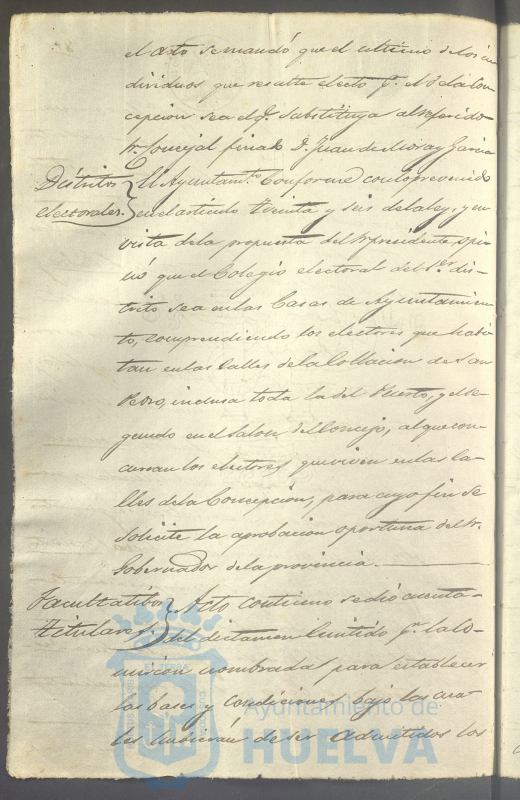 el acto se mandó que el último de los in
dividuos que resulte electo p.r el de la Con
cepcion sea el q.e substituya al referido
Sr. Concejal finado D. Juan de Mora y Garcia
Distritos electorales.
El Ayuntam.to Conforme con lo prevenido
en el articulo treinta y seis de la ley, y en
vista de la propuesta del Sr. presidente, opi
nó que el Colegio electoral del 1.er dis-
trito sea en las Casas de Ayuntamien
to, comprendiendo los electores que habi
tan en las Calles de la Collacion de San
Pedro, inclusa toda la del Puerto, y el se
gundo en el Salon del Concejo, al que con
curran los electores que viven en las ca-
lles de la Concepcion, para cuyo fin se
solicite la aprobacion oportuna del Sr.
Gobernador de la provincia.
Facultativos titulares.
Acto continuo se dió cuenta
del dictamen emitido p.r la Co-
micion nombrada para establecer
las bases y condiciones bajo las cua-
les hubieran de ser admitidos los
Ayuntamiento de
HUELVA